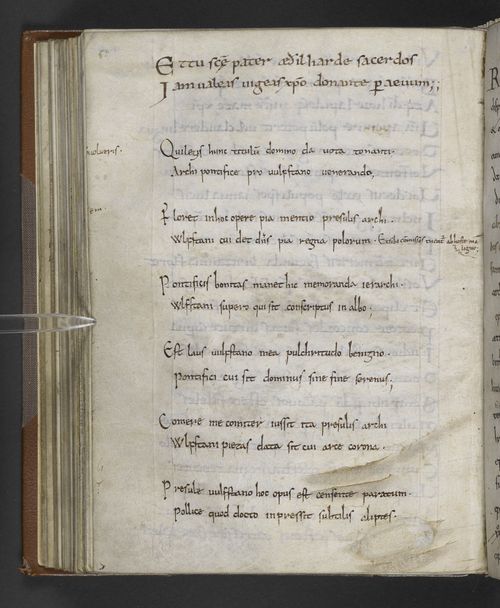 Et tu scē pater ædilharde sacerdos
Iam valeas vigeas xp̄o donante p̱ aevum;;
volveris.
Qui legis hunc titulum domino da vota tonanti.
Archi pontifice pro vulfstano venerando,
Floret in hoc opere pia mentio presulis archi
Wlfstani cui det dn̄s pia regna polorum.
Pontificis bonitas manet hic memoranda ierarchi.
Wlfstani supero qui sit conscriptus in albo.
Est laus vulfstano mea pulchritudo benigno.
Pontifici cui sit dominus sine fine serenus;
Comere me comiter iussit ita presulis archi
Wlfstani pietas data sit cui arce corona.
Presule vulfstano hoc opus est censente paratum.
Pollice quod docto inpressit subtilis aliptes.